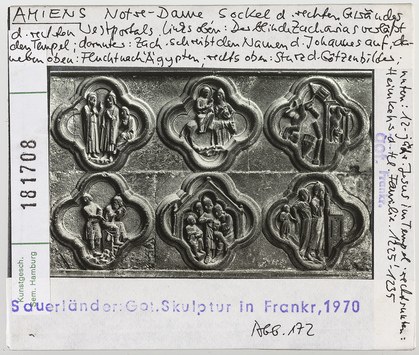 AMIENS Notre-Dame Sockel d. rechten Gewändes
d. rechten Westportals links oben: Der blinde Zacharias verläßt
den Tempel; darunter: Zach. schreibt den Namen d. Johannes auf, da-
neben oben: Flucht nach Ägypten, rechts oben: Sturz d. Götzenbilder,
unten: 12-jähr. Jesus im Tempel, rechts unten:
Heimkehr d. Hl. Familie. 1225-1235
Got. Frankr.
181708
Kunstgesch.
Sem. Hamburg
Sauerländer: Got. Skulptur in Frankr, 1970
Abb. 172